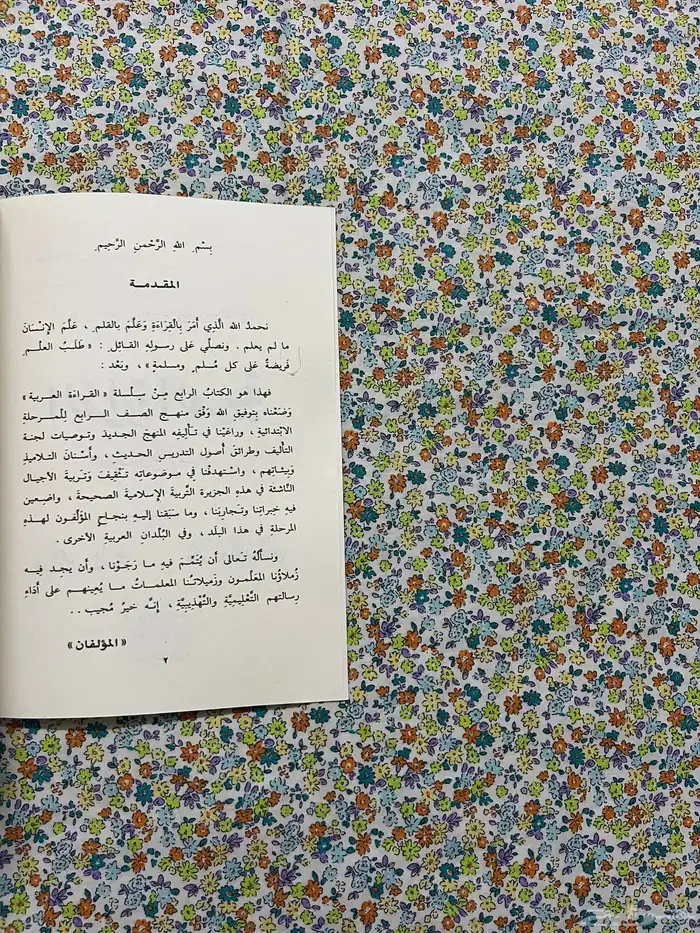 بِسْمِ اللهِ الرَّحْمنِ الرَّحِيمِ
المقدمة
نحمدُ الله الَّذِي أمَرَ بِالْقِرَاءَةِ وَعَلَّمَ بالقلمِ ، عَلَّمَ الإنْسَانَ
ما لم يعلم . ونصلّي عَلى رسولهِ القائلِ : « طَلَبُ العلْمِ
فَرِيضَةٌ عَلى كل مُسلمٍ ومسلمةٍ » ، وَبَعْد :
فهذا هو الكتابُ الرابع مِنْ سِلْسلة « القراءة العربية »
وَضَعْناه بِتوفيقِ الله وَفْق منهج الصف الرابع لِلْمرحلةِ
الابتدائيةِ ، وراعَيْنا في تأليفِه المنهجَ الجديدَ وتوصياتِ لجنة
التأليف وطرائقَ أصول التدريسِ الحديث ، وأسْنانَ التلاميذِ
وَبيئاتِهم ، واسْتهدفْنا في موضوعاتِه تَثْقِيفَ وتَربيةَ الأجيالِ
النَّاشئة في هذهِ الجزيرةِ التَّربيةَ الإسلاميةَ الصحيحةَ ، واضِعين
فيهِ خبراتِنا وتَجاربَنا ، وما سَبَقنا إليهِ بنجاحٍ المؤلّفون لهذهِ
المرحلةِ في هذا البلَد ، وفي البُلْدانِ العربيةِ الأخرى .
ونسألُهُ تَعالى أن يُتَمِّمَ فيهِ ما رَجَوْنا ، وأن يجد فيه
زُملاؤُنا المعلّمون وزميلاتُنا المعلمات ما يُعِينهم على أدَاءِ
رِسالتهم التَّعْلِيميَّةِ والتَّهْذِيبيَّةِ ، إنَّه خيرُ مُجيب . .
« المؤلفان »
٢